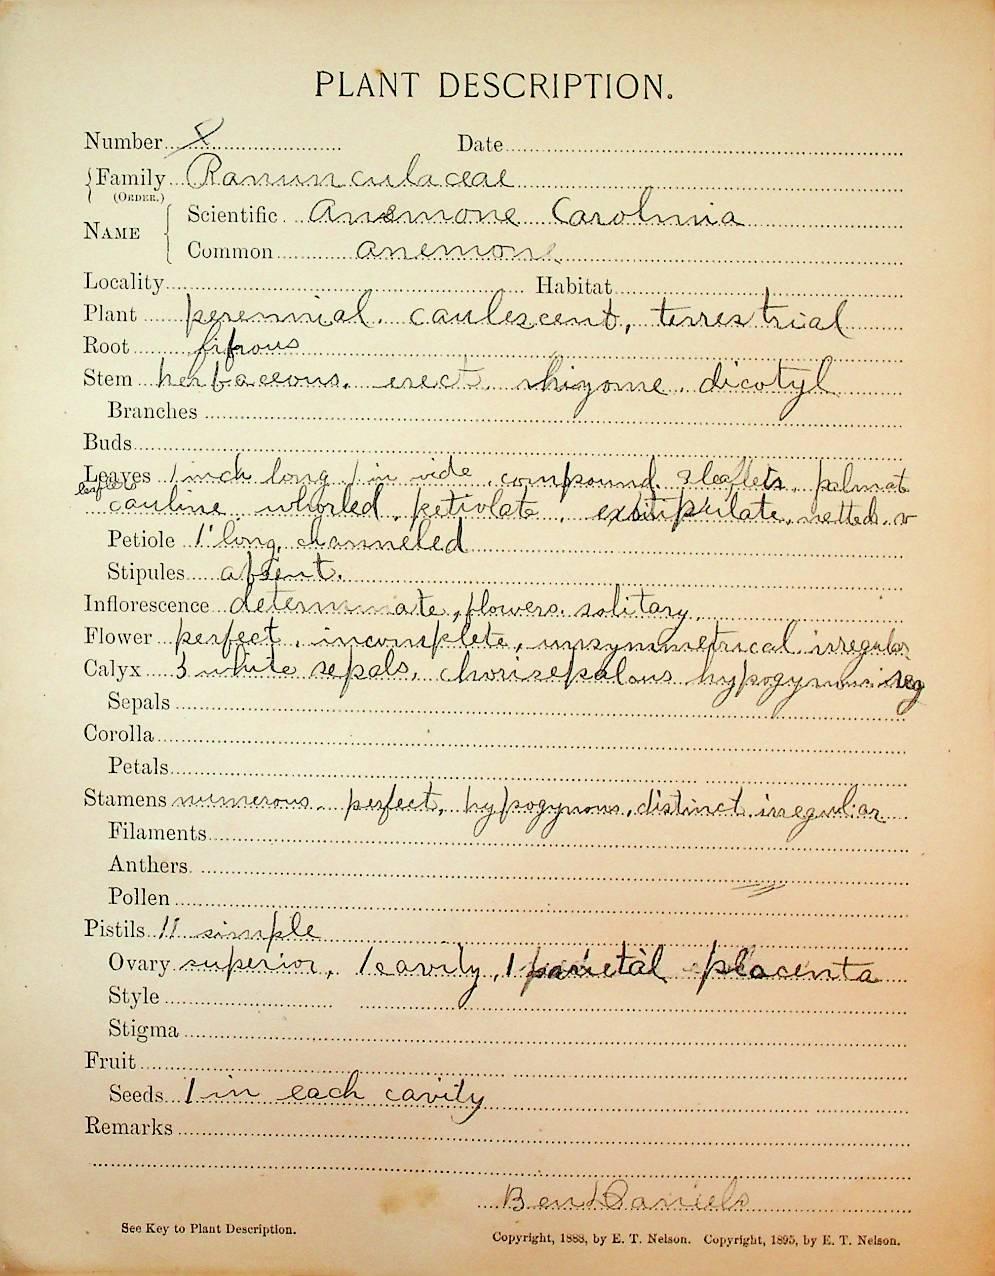 PLANT DESCRIPTION.
Number Date
Family Ranunculaceae
(ORDER.)
Scientific Anemone Carolinia
NAME
Common anemone
Locality Habitat
Plant perennial. caulescent, terrestrial
Root fifrous
Stem herbaceous. erect. rhizome. dicotyl
Branches
Buds
Leaves 1 inch long 1 in wide, compound. 3 leaflets, palmat
leaflets
cauline whorled, petiolate, exstipulate, netted. v
Petiole 1" long, channeled
Stipules absent.
Inflorescence determinate, flowers. solitary,
Flower perfect, incomplete, unsymmetrical irregular
Calyx 3 white sepals, chorisepalous hypogynous irreg
Sepals
Corolla
Petals
Stamens numerous perfect, hypogynous, distinct irregular
Filaments
Anthers
Pollen
Pistils 11 simple
Ovary superior, 1 cavity, 1 parietal placenta
Style
Stigma
Fruit
Seeds 1 in each cavity
Remarks
Ben Daniels
See Key to Plant Description.
Copyright, 1888, by E. T. Nelson. Copyright, 1895, by E. T. Nelson.